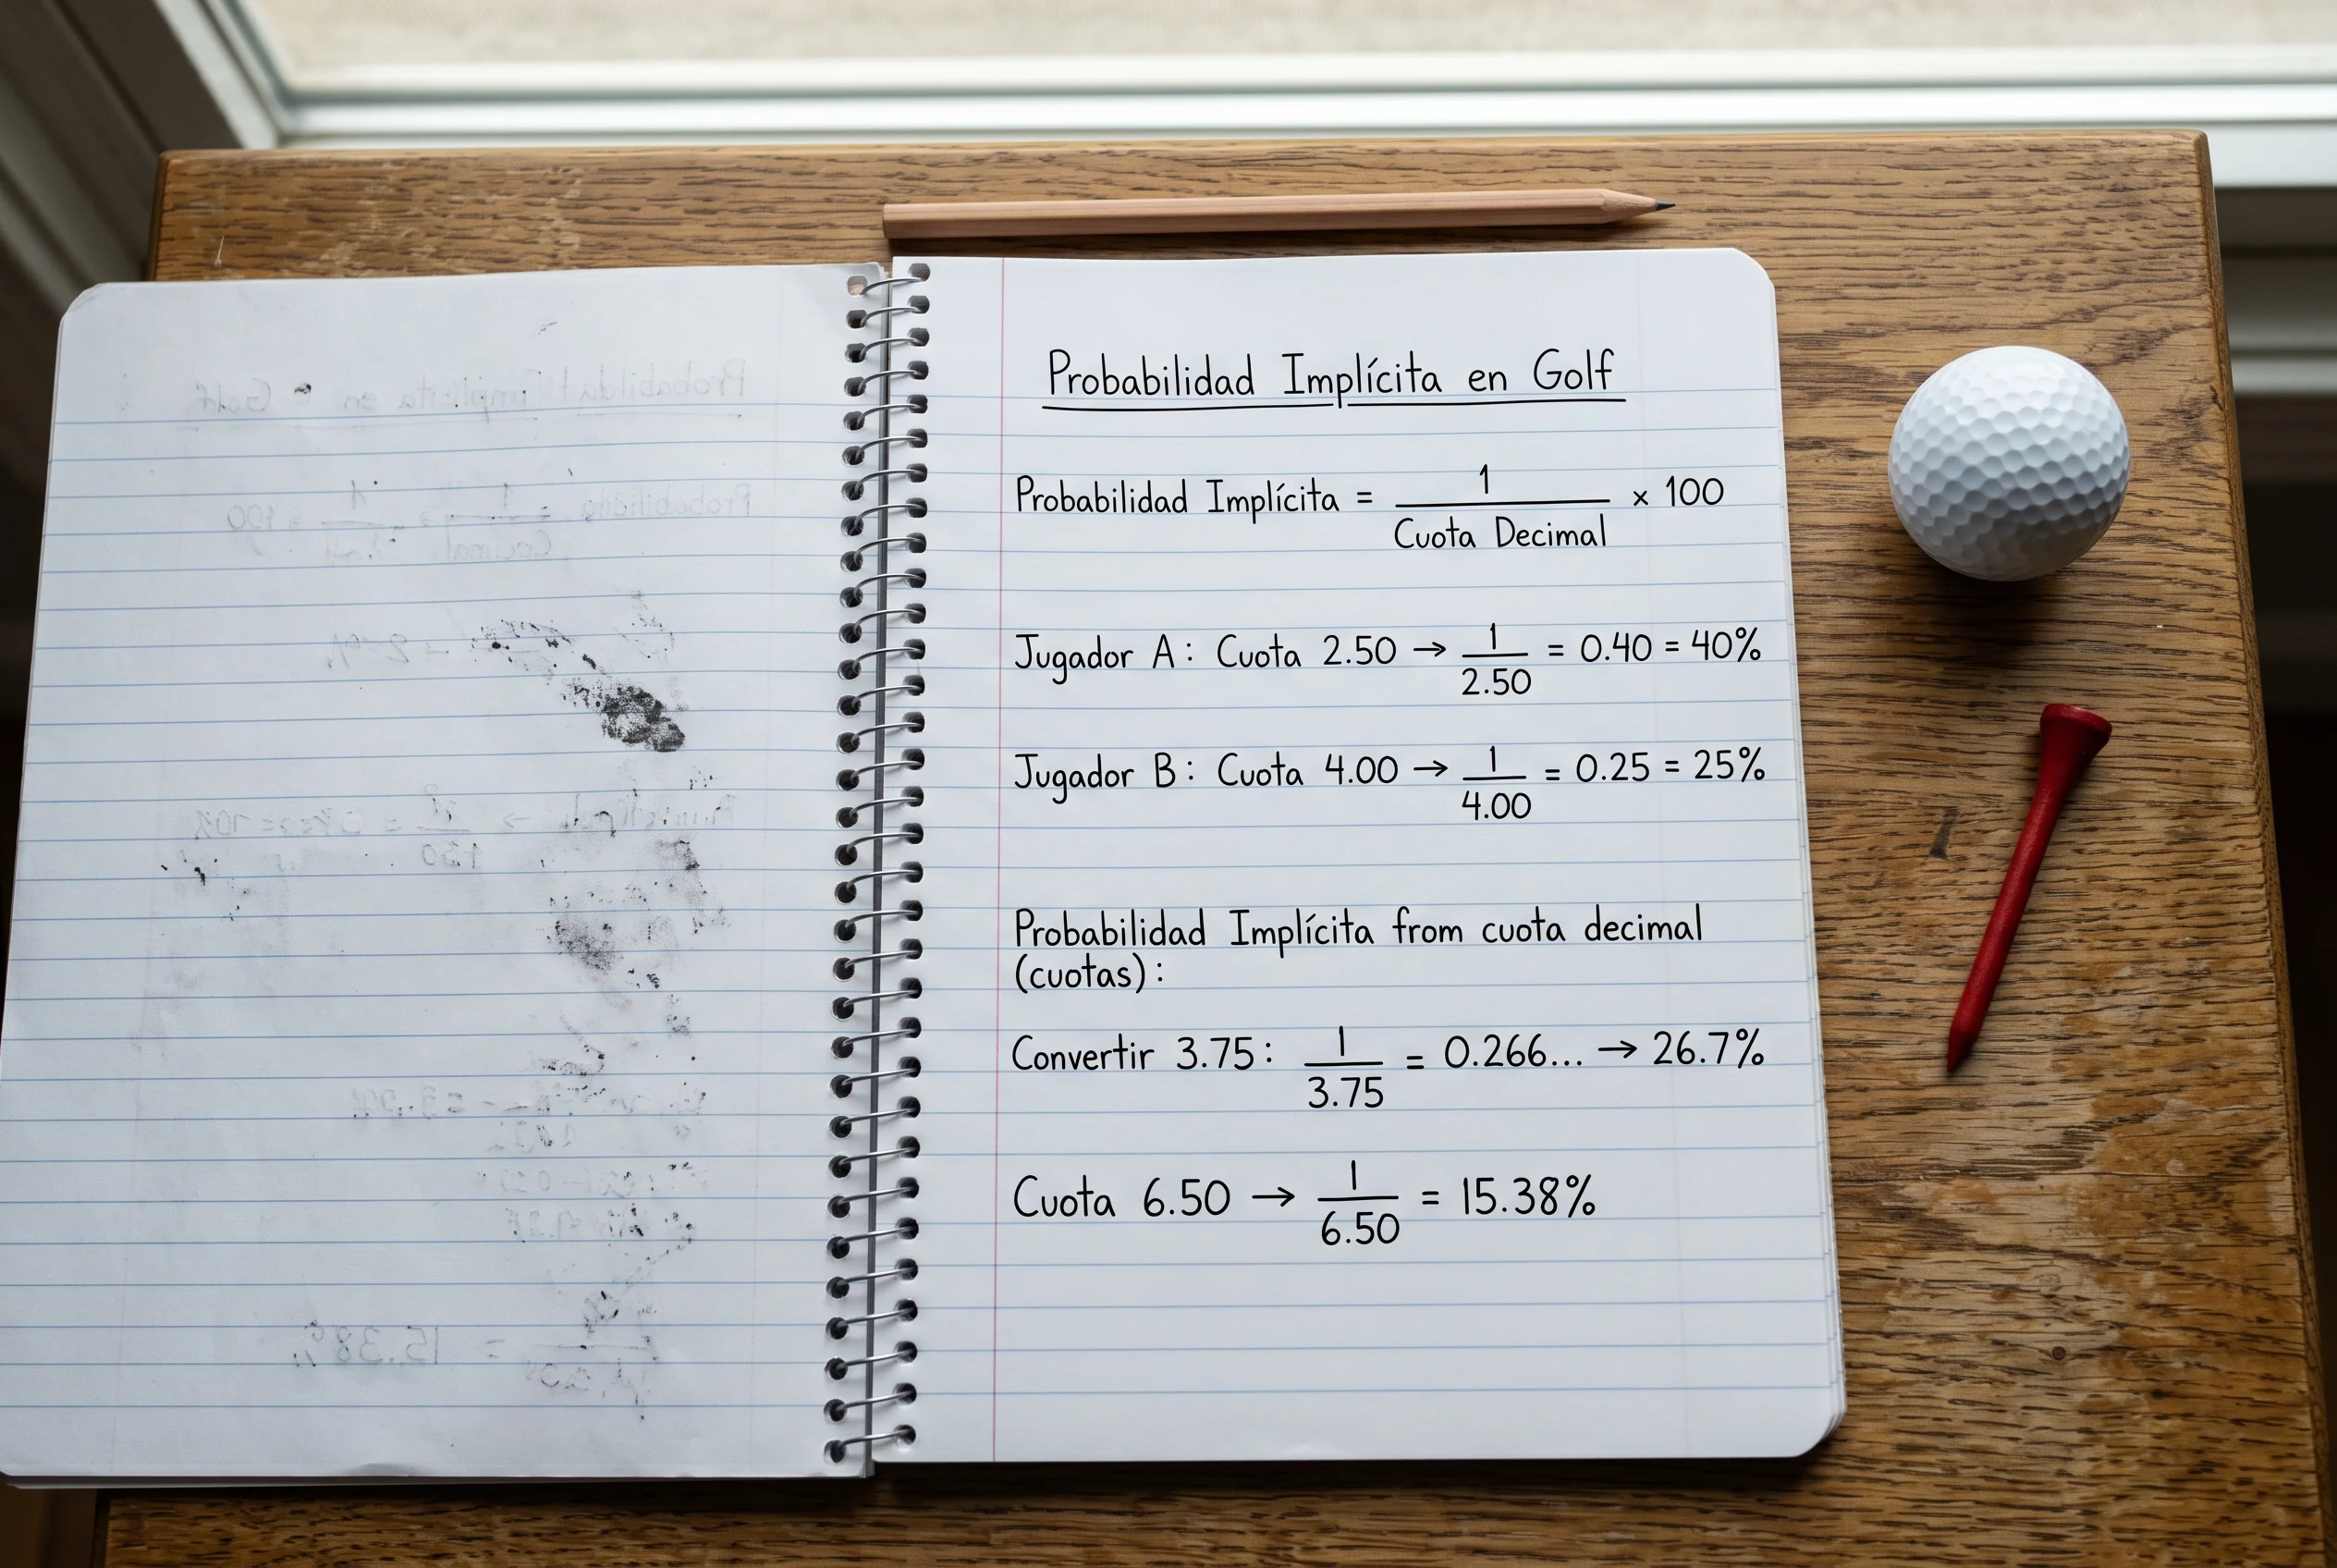 Probabilidad Implícita en Golf
Probabilidad Implícita = 1 / Cuota Decimal × 100
Jugador A: Cuota 2.50 → 1 / 2.50 = 0.40 = 40%
Jugador B: Cuota 4.00 → 1 / 4.00 = 0.25 = 25%
Probabilidad Implícita from cuota decimal
(cuotas):
Convertir 3.75: 1 / 3.75 = 0.266... → 26.7%
Cuota 6.50 → 1 / 6.50 = 15.38%